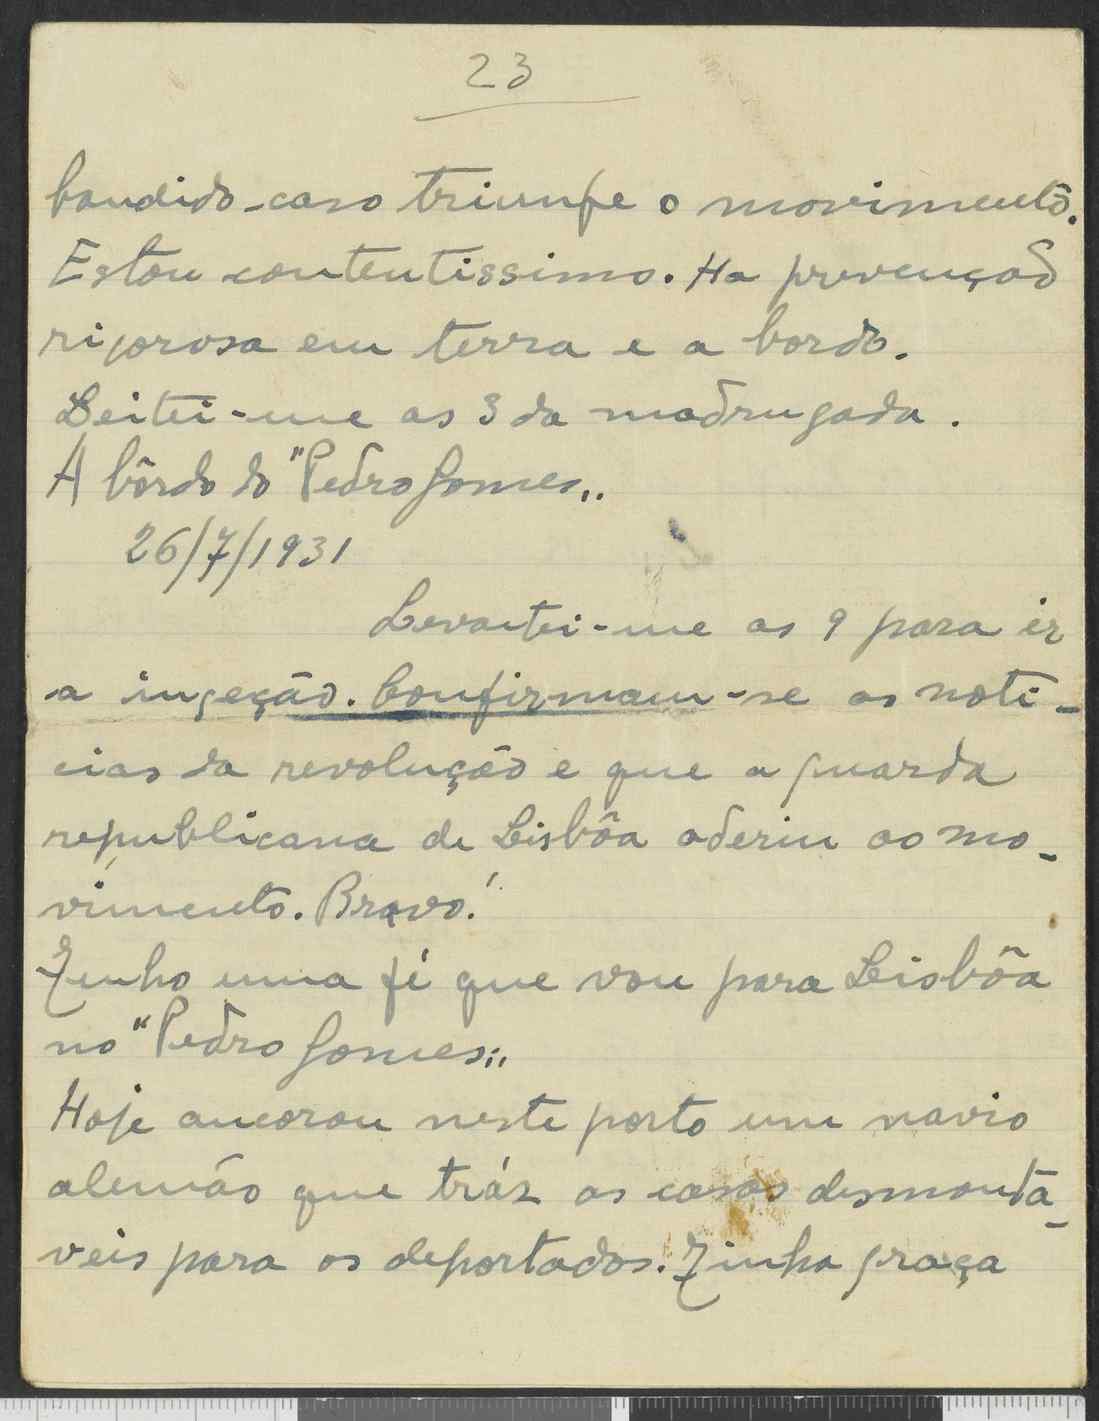 23
bandido caso triunfe o movimento.
Estou contentissimo. Ha prevenção
rigorosa em terra e a bordo.
Deitei-me as 3 da madrugada.
A bôrdo do "Pedro Gomes„.
26/7/1931
Levantei-me as 9 para ir
a ingeção. Confirmam-se as noti-
cias da revolução e que a guarda
republicana de Lisbôa aderiu ao mo-
vimento. Bravo!
Tenho uma fé que vou para Lisbôa
no "Pedro Gomes„
Hoje ancorou neste porto um navio
alemão que tráz as casas desmontá-
veis para os deportados. Tinha graça